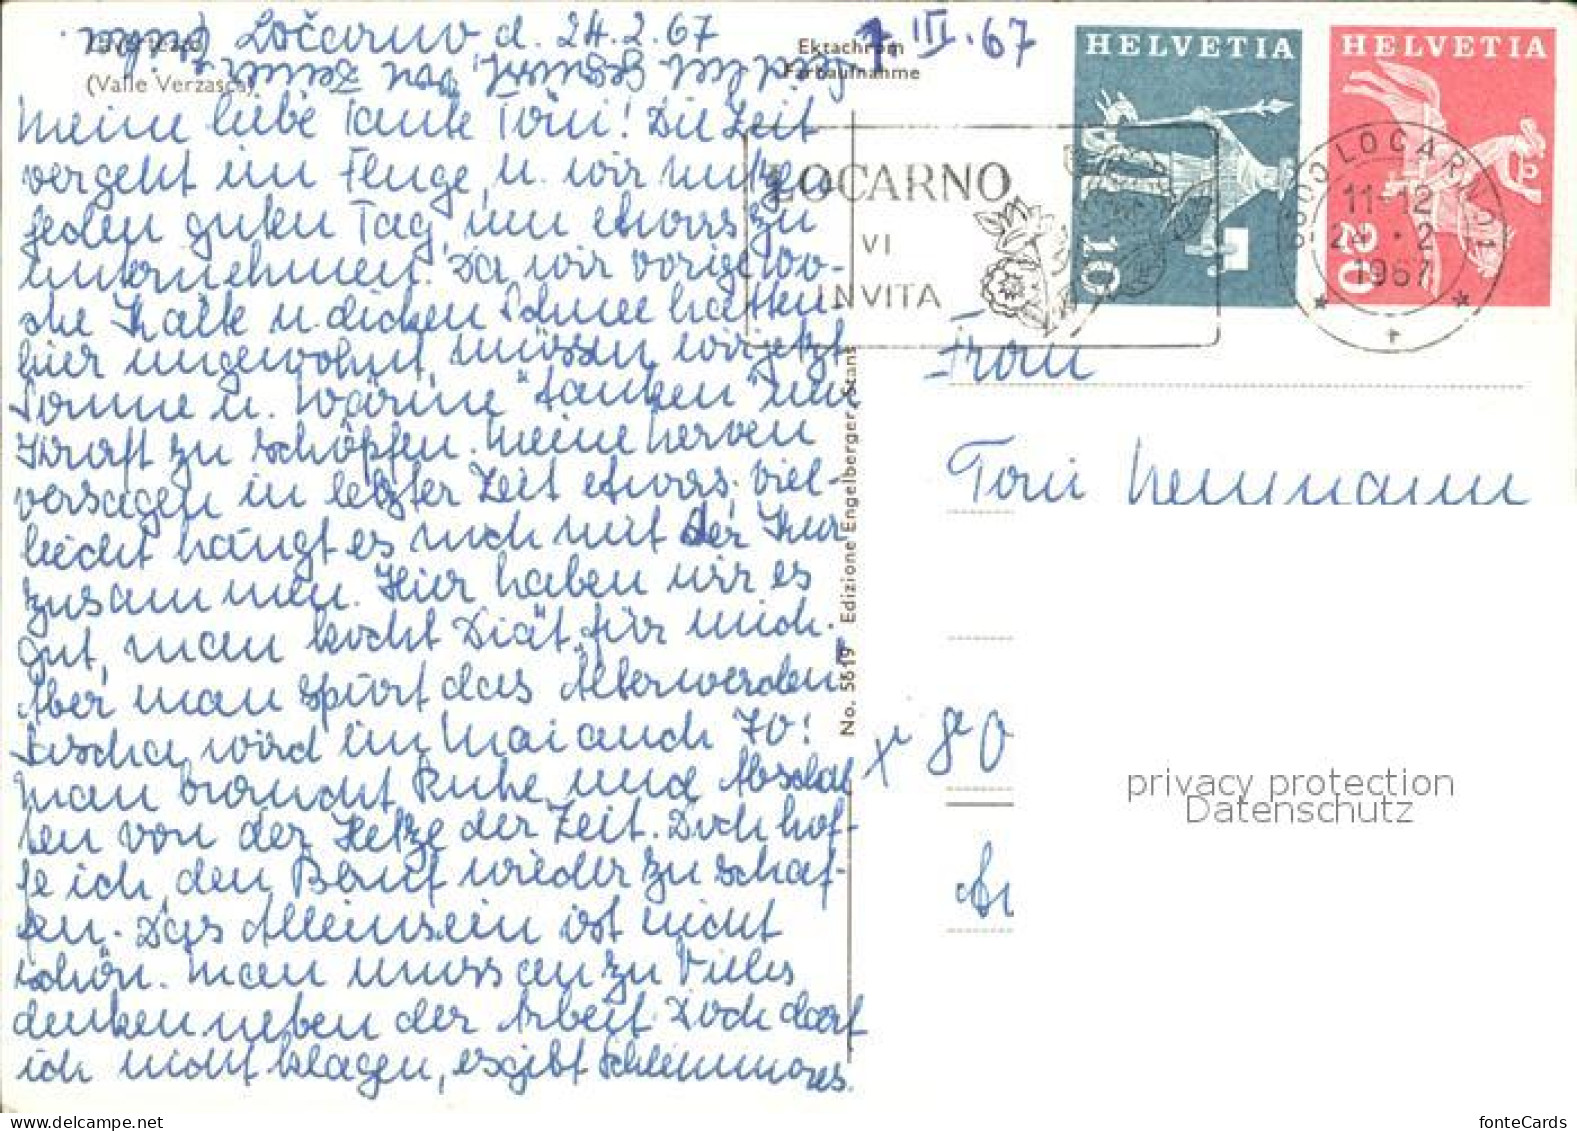 Locarno d. 24.2.67
(Valle Verzasca)
Meine liebe Tante Toni! Die Zeit
vergeht im Fluge, u. wir nutzen
jeden guten Tag, um etwas zu
unternehmen. Da wir vorige Wo-
che Kälte u. dicken Schnee hatten
hier ungewohnt, müssen wir jetzt
Sonne u. Wärme "tanken" um
Kraft zu schöpfen. Meine Nerven
versagen in letzter Zeit etwas, viel-
leicht hängt es noch mit der Kur
zusammen. Hier haben wir es
gut, man kocht Diät für mich.
Aber man spürt das Älterwerden.
Sascha wird im Mai auch 70!
Man braucht Ruhe und Abschal
ten von der Hetze der Zeit. Doch hof-
fe ich, den Beruf wieder zu schaf-
fen. Das Alleinsein ist nicht
schön. Man muss an zu Vieles
denken neben der Arbeit. Doch darf
ich nicht klagen, es gibt Schlimmeres.
Ektachrom
Farbaufnahme
1. III. 67
No. 5619 Edizione Engelberger, Stans
LOCARNO
VI
INVITA
HELVETIA
10
HELVETIA
20
6600 LOCARNO 1
11-12
24. 2
1967
Frau
Toni Neumann
x 80
privacy protection
Datenschutz
fonteCards